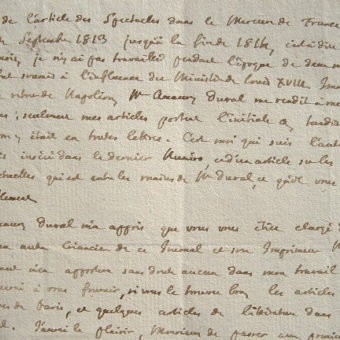 de l'article des Spectacles dans le Mercure de France
Septembre 1813 jusqu'à la fin de 1814, c'est à dire
je n'y ai pas travaillé pendant l'époque de deux
soumis à l'influence du Ministère de Louis XVIII.
retour de Napoléon, Mr Amaury Duval me rendit à
; seulement mes articles portent l'initiale
y était en toutes lettres. C'est moi qui suis l'aute
inséré dans le dernier Numéro, et d'un article sur les
actuelles qui est entre les mains de Mr Duval, et qu'il vous

Amaury Duval m'a appris que vous vous étiez chargé d
de ce Journal et son Imprimeur M
m'a apporter sans doute aucun dans mon travail
à vous fournir, si vous le trouvez bon, les articles
de Paris, et quelques articles de littérature dans
J'aurai le plaisir, Monsieur, de passer un